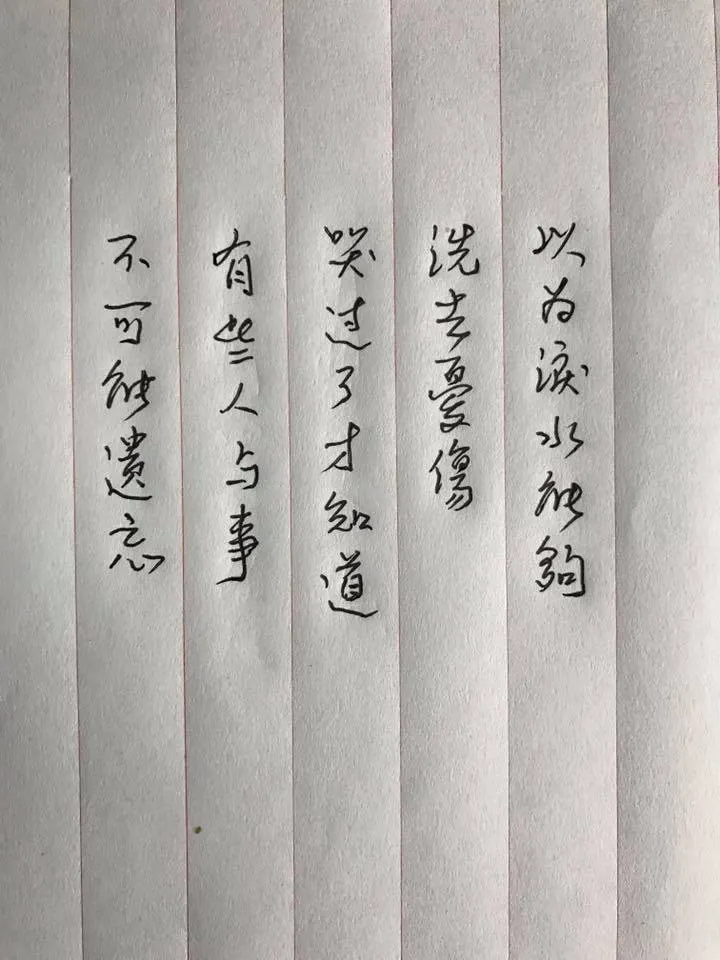 以为淚水能夠
洗去憂傷
哭过了才知道
有些人与事
不可能遺忘